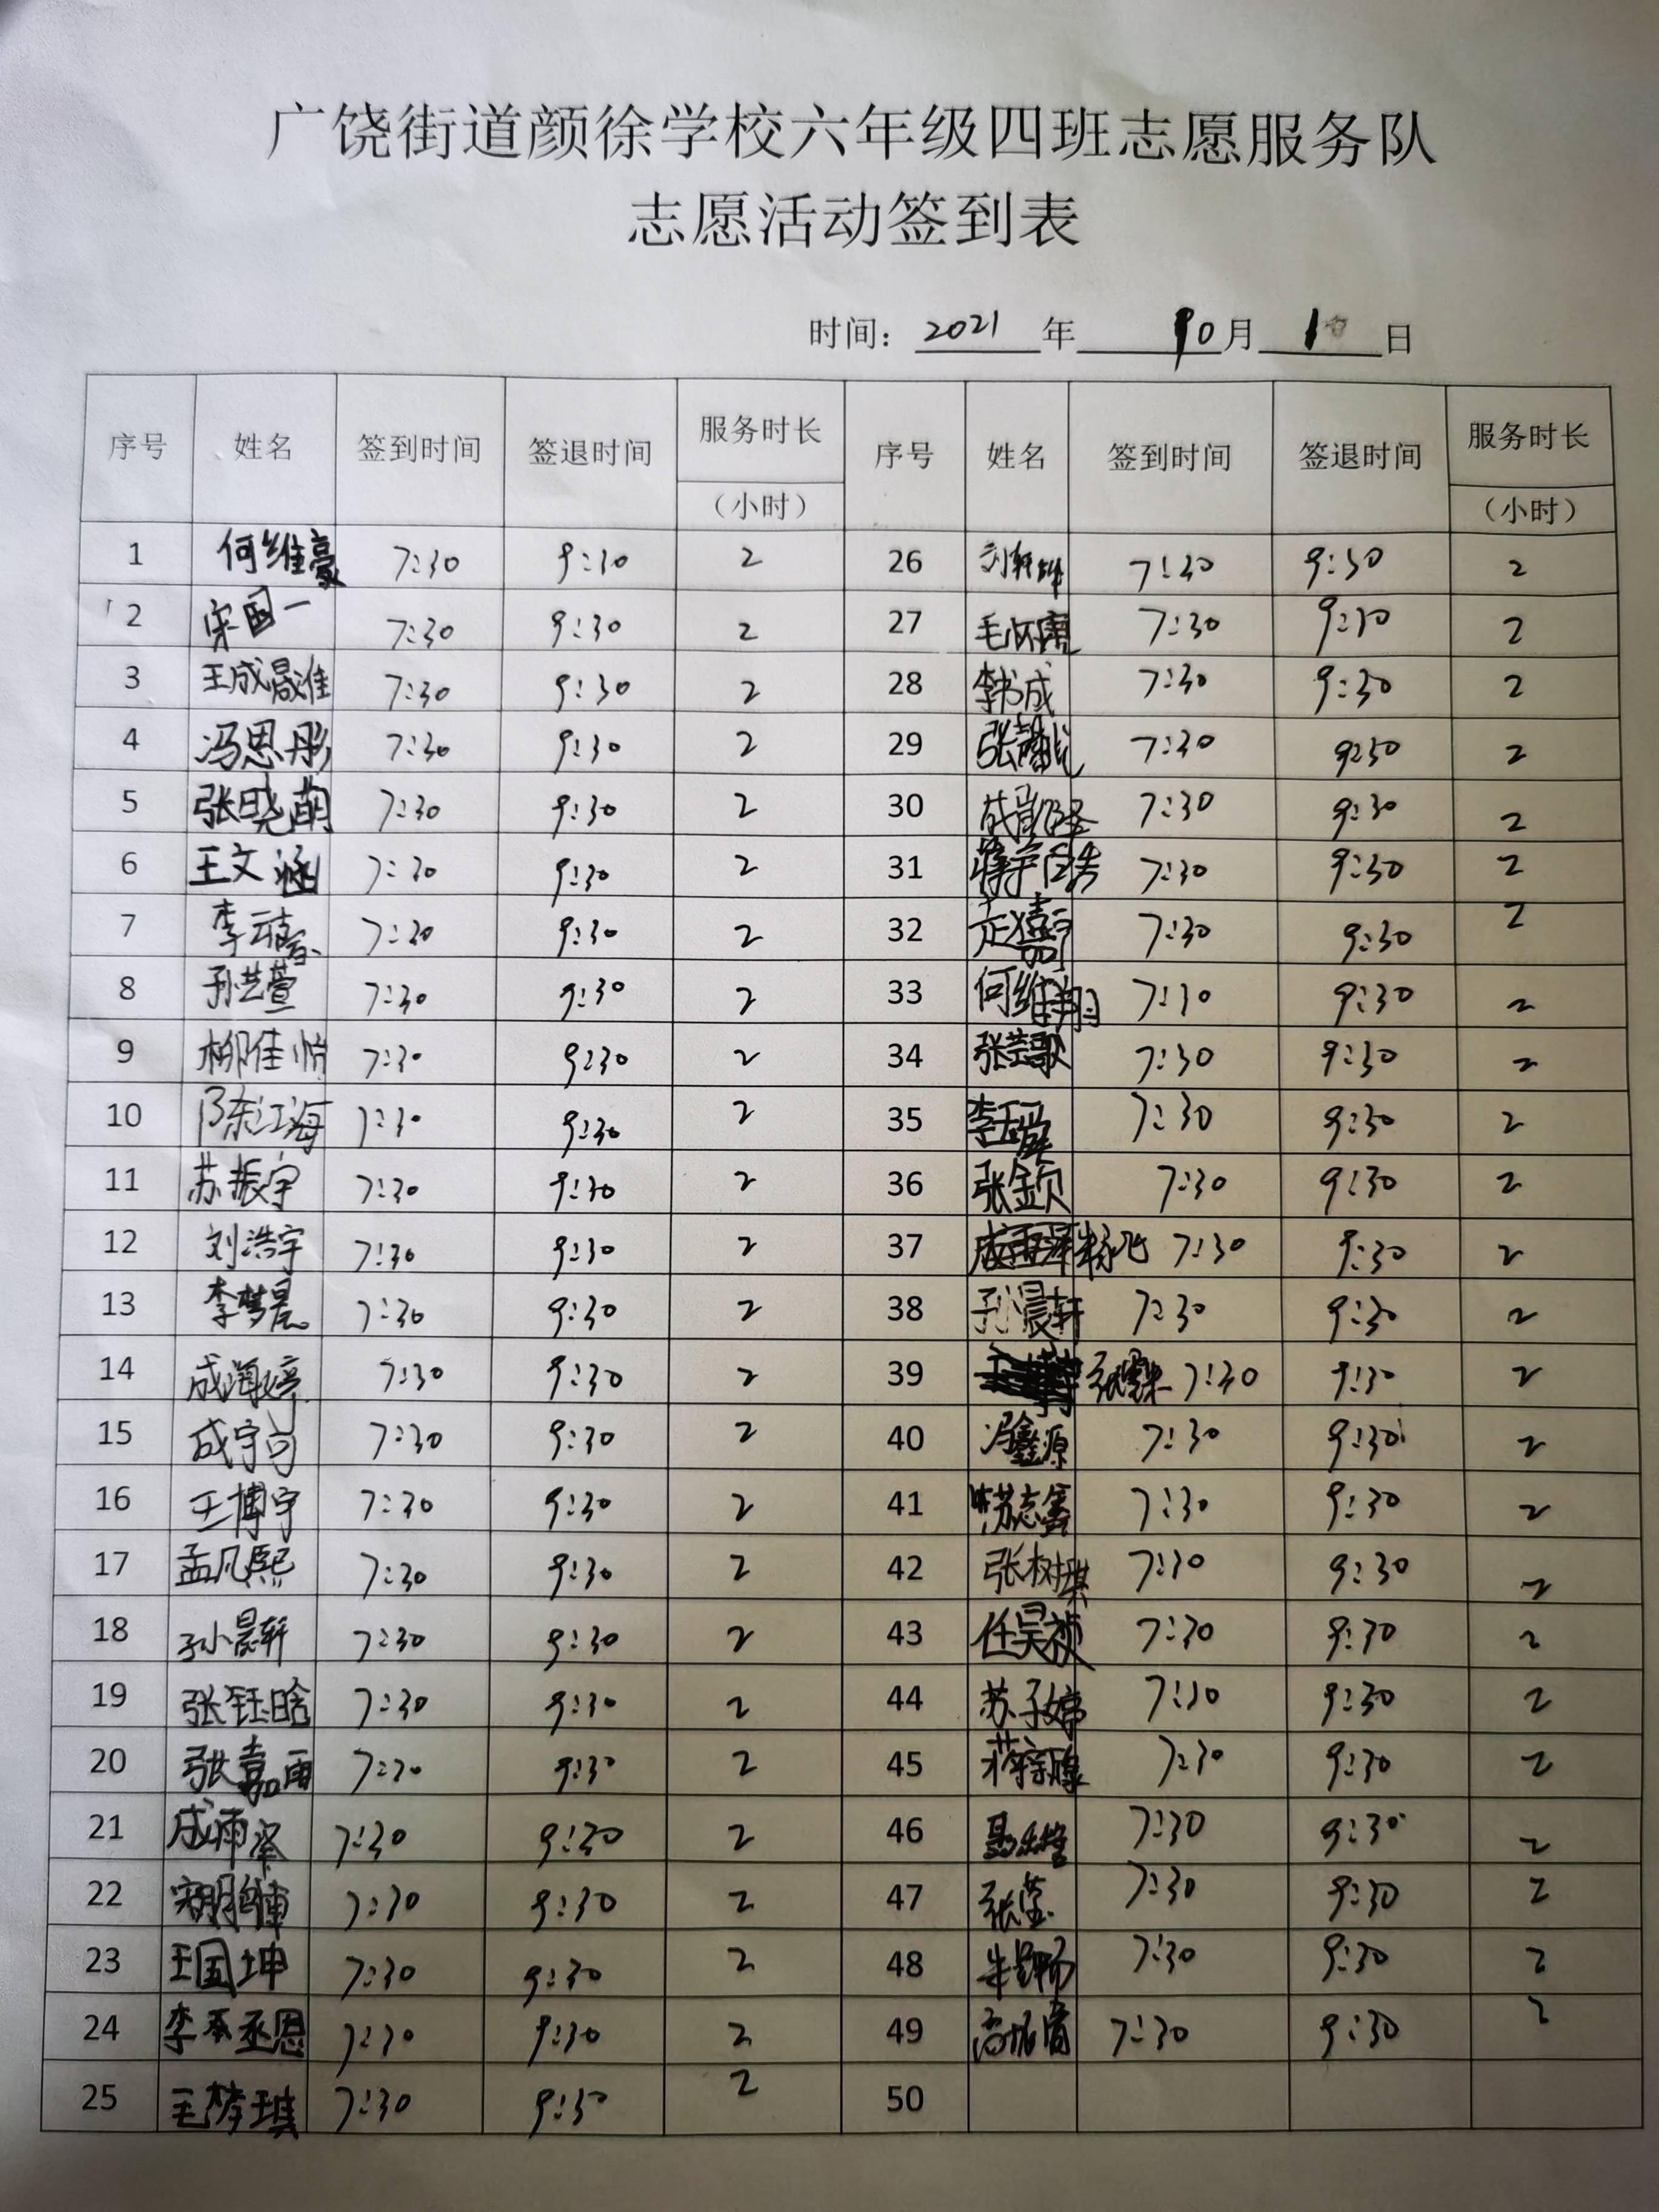 广饶街道颜徐学校六年级四班志愿服务队
志愿活动签到表
时间：2021年10月1日
序号 姓名 签到时间 签退时间 服务时长（小时） 序号 姓名 签到时间 签退时间 服务时长（小时）
1 何维豪 7:30 9:30 2 26 7:30 9:30 2
2 宋国一 7:30 9:30 2 27 毛怀康 7:30 9:30 2
3 王成晸淮 7:30 9:30 2 28 李书成 7:30 9:30 2
4 冯思彤 7:30 9:30 2 29 7:30 9:30 2
5 张晓萌 7:30 9:30 2 30 7:30 9:30 2
6 王文涵 7:30 9:30 2 31 蒋宇皓 7:30 9:30 2
7 7:30 9:30 2 32 7:30 9:30 2
8 孙艺萱 7:30 9:30 2 33 何维翔 7:30 9:30 2
9 柳佳悦 7:30 9:30 2 34 张芸歌 7:30 9:30 2
10 陈江海 7:30 9:30 2 35 7:30 9:30 2
11 苏振宇 7:30 9:30 2 36 张金贝 7:30 9:30 2
12 刘浩宇 7:30 9:30 2 37 7:30 9:30 2
13 李梦晨 7:30 9:30 2 38 孙晨轩 7:30 9:30 2
14 成海婷 7:30 9:30 2 39 7:30 9:30 2
15 成宇 7:30 9:30 2 40 冯鑫源 7:30 9:30 2
16 王博宇 7:30 9:30 2 41 苏志鑫 7:30 9:30 2
17 孟凡熙 7:30 9:30 2 42 张树琪 7:30 9:30 2
18 孙晨轩 7:30 9:30 2 43 任昊 7:30 9:30 2
19 张钰晗 7:30 9:30 2 44 苏子婷 7:30 9:30 2
20 张嘉雨 7:30 9:30 2 45 7:30 9:30 2
21 成雨泽 7:30 9:30 2 46 7:30 9:30 2
22 7:30 9:30 2 47 张莹 7:30 9:30 2
23 王国坤 7:30 9:30 2 48 7:30 9:30 2
24 李承恩 7:30 9:30 2 49 7:30 9:30 2
25 王梦琪 7:30 9:30 2 50